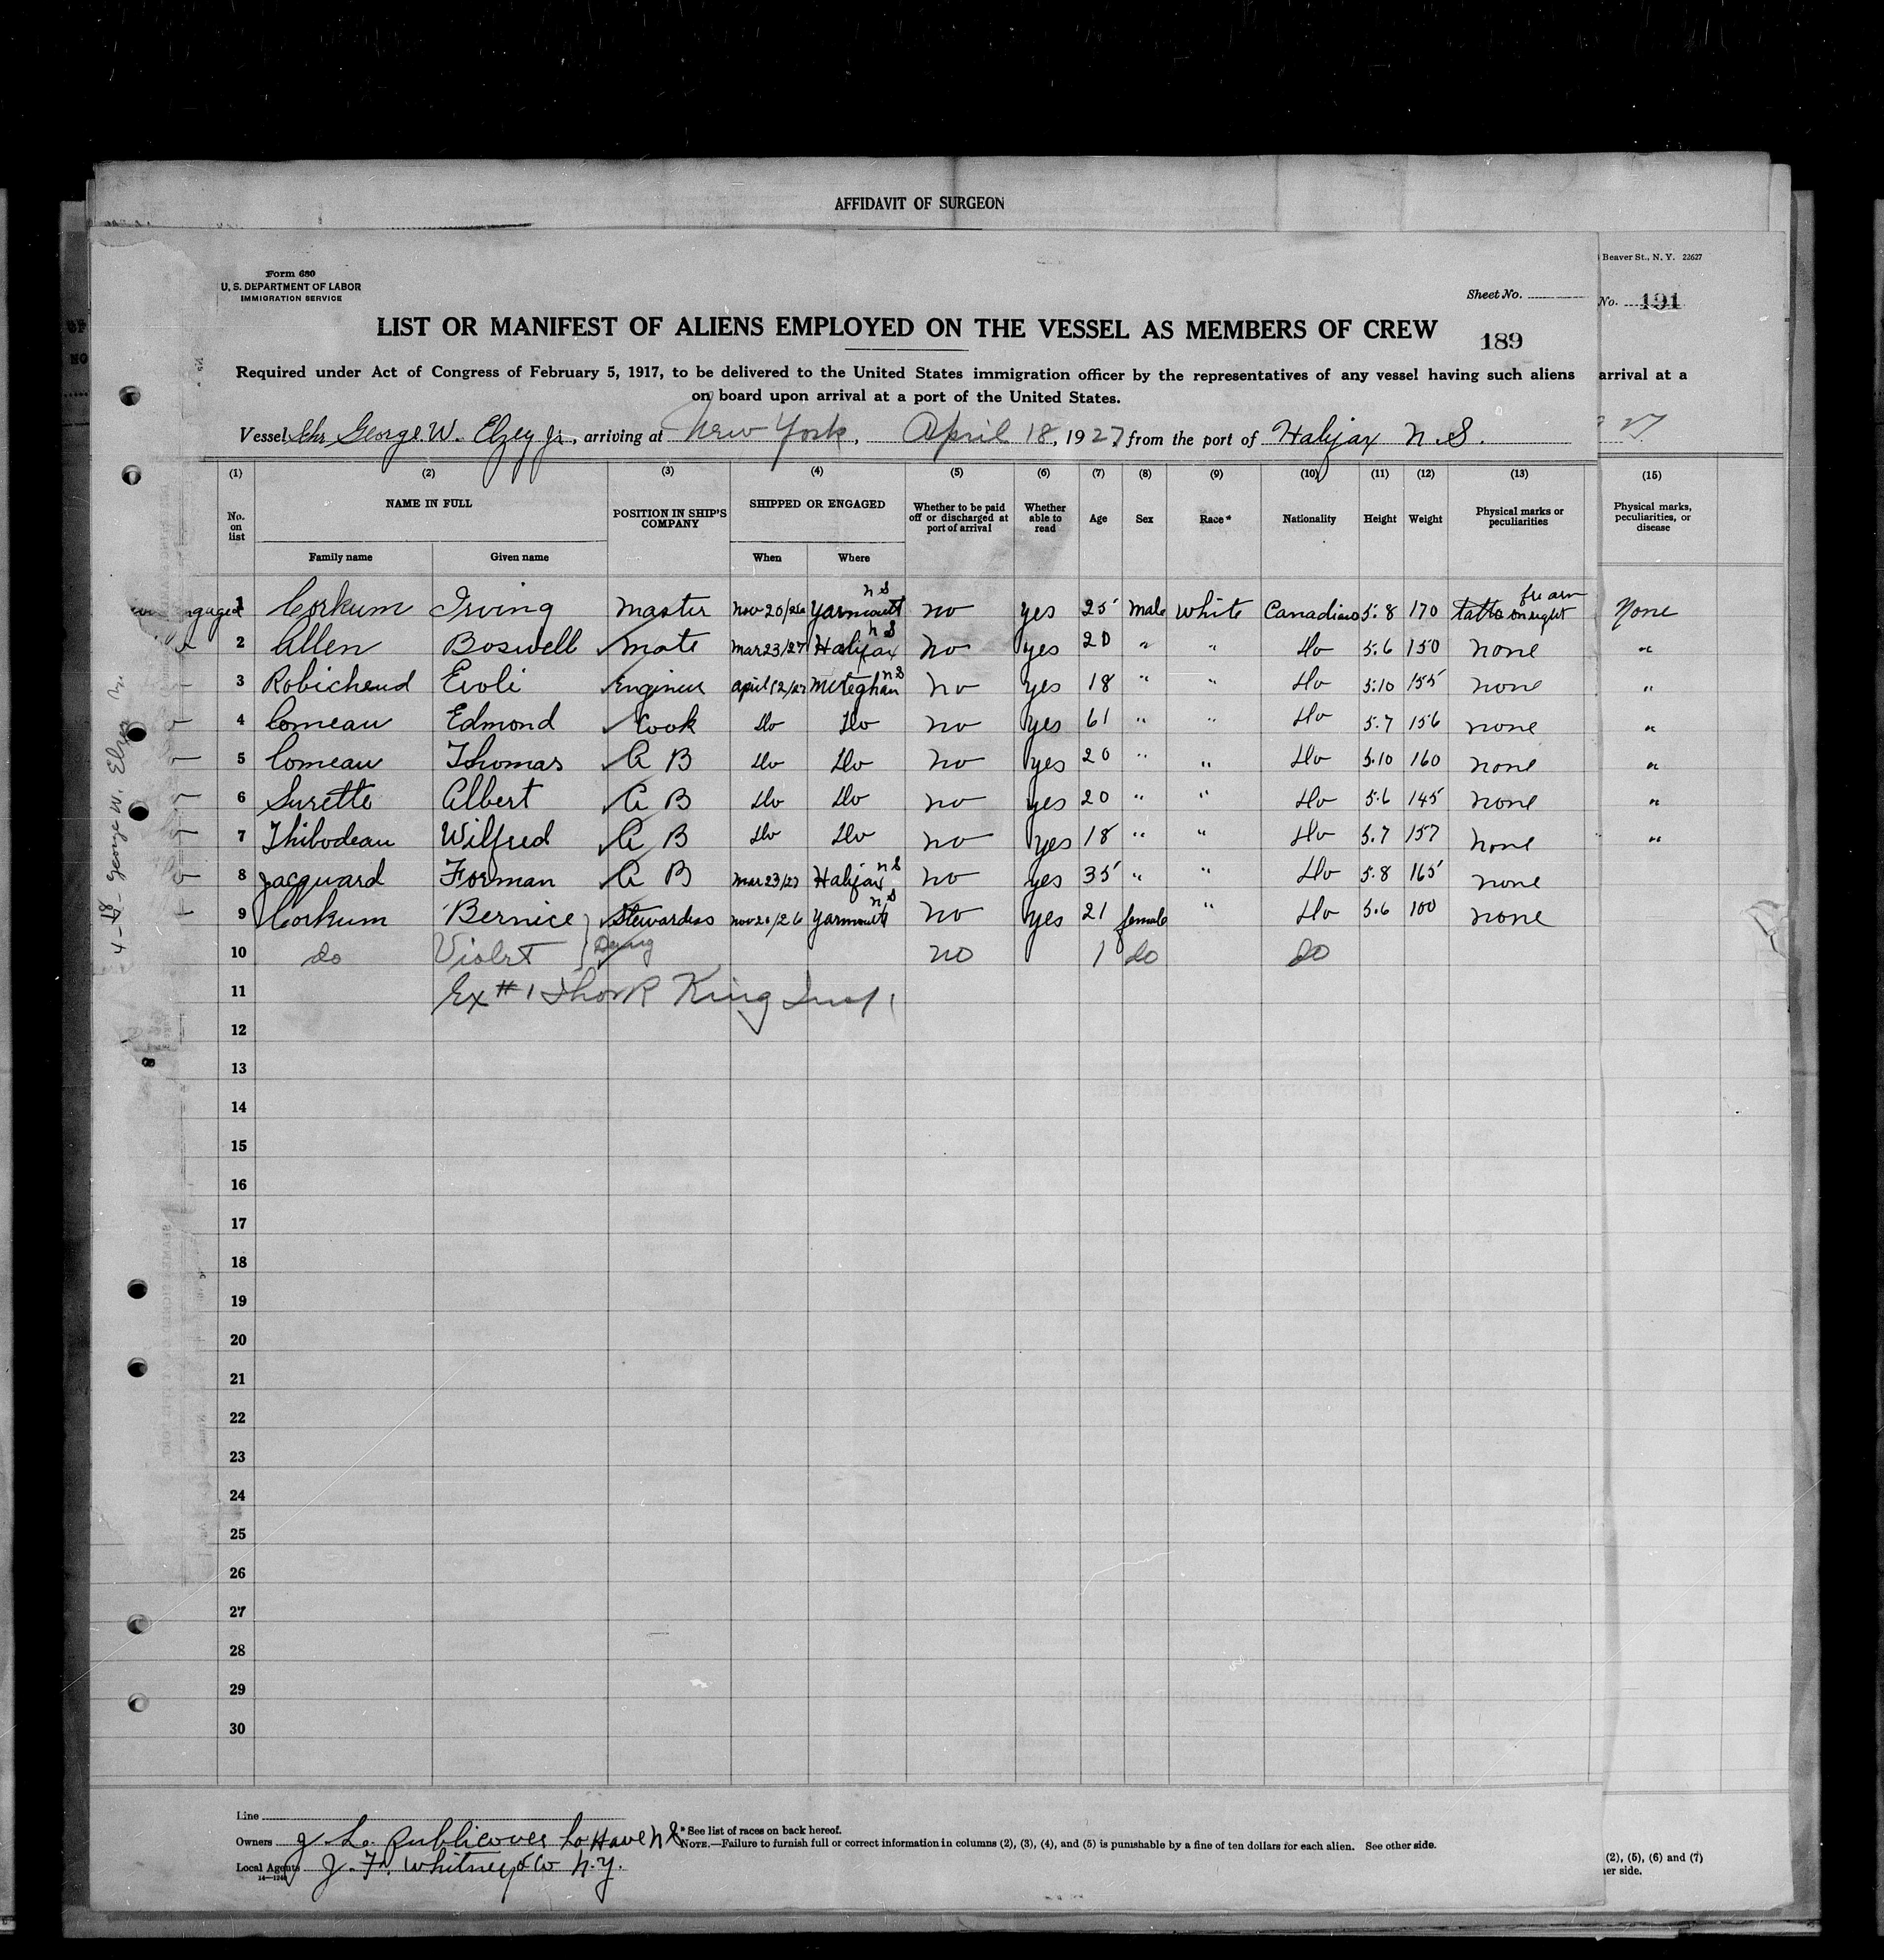 AFFIDAVIT OF SURGEON
Beaver St., N. Y. 22627
Form 680
U. S. DEPARTMENT OF LABOR
IMMIGRATION SERVICE
Sheet No.
No. 191
LIST OR MANIFEST OF ALIENS EMPLOYED ON THE VESSEL AS MEMBERS OF CREW
189
Required under Act of Congress of February 5, 1917, to be delivered to the United States immigration officer by the representatives of any vessel having such aliens
arrival at a
on board upon arrival at a port of the United States.
Vessel Schr George. W. Elzey Jr., arriving at New York, April 18, 1927, from the port of Halifax N. S.
(1) (2) (3) (4) (5) (6) (7) (8) (9) (10) (11) (12) (13) (15)
No. on list NAME IN FULL Family name Given name POSITION IN SHIP'S COMPANY SHIPPED OR ENGAGED When Where Whether to be paid off or discharged at port of arrival Whether able to read Age Sex Race* Nationality Height Weight Physical marks or peculiarities Physical marks, peculiarities, or disease
1 Corkum Irving Master Nov 20/26 Yarmouth N S no yes 25 Male White Canadian 5.8 170 tatto on right fre arm None
2 Allen Boswell Mate Mar 23/27 Halifax N S No yes 20 " " Do 5.6 150 none "
3 Robicheud Evoli Engineer April 12/27 Meteghan N S No yes 18 " " Do 5.10 155 none "
4 Comeau Edmond Cook Do Do no yes 61 " " Do 5.7 156 none "
5 Comeau Thomas A B Do Do no yes 20 " " Do 5.10 160 none "
6 Surette Albert A B Do Do no yes 20 " " Do 5.6 145 none "
7 Thibodeau Wilfred A B Do Do no yes 18 " " Do 5.7 157 none "
8 Jacquard Forman A B Mar 23/27 Halifax N S no yes 35 " " Do 5.8 165 none
9 Corkum Bernice Stewardess Nov 20/26 Yarmouth N S no yes 21 female " Do 5.6 100 none
10 do Violet no 1 do do
11 Ex # 1 King Insp
12
13
14
15
16
17
18
19
20
21
22
23
24
25
26
27
28
29
30
4-18- George W. Elzey
8
Line
Owners J. L. Publicover La Have N S
Local Agents J. F. Whitney & Co N.Y.
14—1240
* See list of races on back hereof.
NOTE.—Failure to furnish full or correct information in columns (2), (3), (4), and (5) is punishable by a fine of ten dollars for each alien. See other side.
(2), (5), (6) and (7)
her side.